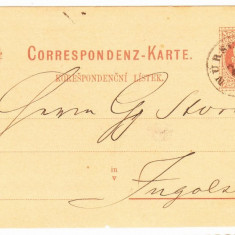 CORRESPONDENZ-KARTE.
KORESPONDENČNÍ LÍSTEK.
WÜRS
Herrn Gg Stor
in
v
Ingols